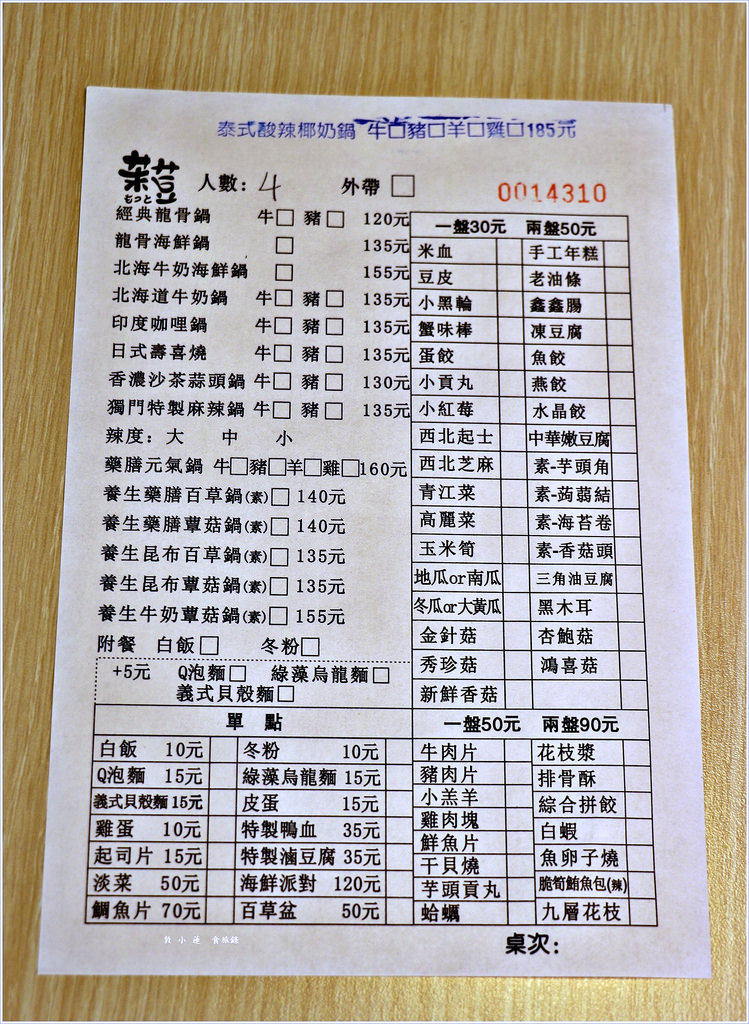 泰式酸辣椰奶鍋 牛□豬□羊□雞□185元
菜荳
もっと
人數: 4 外帶 □
0014310
經典龍骨鍋 牛□ 豬□ 120元
龍骨海鮮鍋 □ 135元
北海牛奶海鮮鍋 □ 155元
北海道牛奶鍋 牛□ 豬□ 135元
印度咖哩鍋 牛□ 豬□ 135元
日式壽喜燒 牛□ 豬□ 135元
香濃沙茶蒜頭鍋 牛□ 豬□ 130元
獨門特製麻辣鍋 牛□ 豬□ 135元
辣度: 大 中 小
藥膳元氣鍋 牛□豬□羊□雞□160元
養生藥膳百草鍋(素)□ 140元
養生藥膳蕈菇鍋(素)□ 140元
養生昆布百草鍋(素)□ 135元
養生昆布蕈菇鍋(素)□ 135元
養生牛奶蕈菇鍋(素)□ 155元
附餐 白飯□ 冬粉□
+5元 Q泡麵□ 綠藻烏龍麵□
義式貝殼麵□
一盤30元 兩盤50元
米血 手工年糕
豆皮 老油條
小黑輪 鑫鑫腸
蟹味棒 凍豆腐
蛋餃 魚餃
小貢丸 燕餃
小紅莓 水晶餃
西北起士 中華嫩豆腐
西北芝麻 素-芋頭角
青江菜 素-蒟蒻結
高麗菜 素-海苔卷
玉米筍 素-香菇頭
地瓜or南瓜 三角油豆腐
冬瓜or大黃瓜 黑木耳
金針菇 杏鮑菇
秀珍菇 鴻喜菇
新鮮香菇
單 點
白飯 10元 冬粉 10元
Q泡麵 15元 綠藻烏龍麵 15元
義式貝殼麵 15元 皮蛋 15元
雞蛋 10元 特製鴨血 35元
起司片 15元 特製滷豆腐 35元
淡菜 50元 海鮮派對 120元
鯛魚片 70元 百草盆 50元
一盤50元 兩盤90元
牛肉片 花枝漿
豬肉片 排骨酥
小羔羊 綜合拼餃
雞肉塊 白蝦
鮮魚片 魚卵子燒
干貝燒 脆筍鮪魚包(辣)
芋頭貢丸 九層花枝
蛤蠣
桌次:
敦 小 蓮 食旅錄